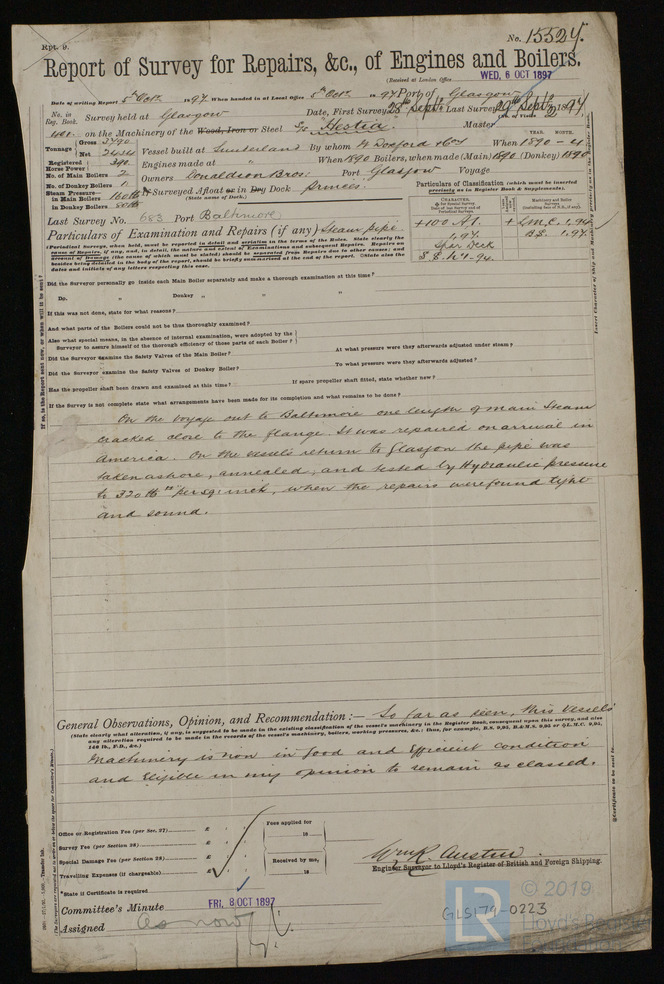 Rpt. 9.
No. 15524.
Report of Survey for Repairs, &c., of Engines and Boilers.
(Received at London Office WED, 6 OCT 1897
Date of writing Report 5th Octr. 1897. When handed in at Local Office 5th Octr. 1897 Port of Glasgow
No. in Reg. Book. Survey held at Glasgow Date, First Survey 28th Septr. Last Survey 29th Septr. 1897
on the Machinery of the Wood, Iron or Steel S.s. "Hestia." Master
Tonnage Gross 3790 Net 2434 Vessel built at Sunderland By whom W Doxford & Sons When 1890 - 4
Registered Horse Power 390 Engines made at " When 1890 Boilers, when made (Main) 1890 (Donkey) 1890
No. of Main Boilers 2 Owners Donaldson Bros. Port Glasgow Voyage
No. of Donkey Boilers 1
Steam Pressure in Main Boilers 160 lb If Surveyed Afloat or in Dry Dock Princes.
(State name of Dock.)
in Donkey Boilers 80 lb
Particulars of Classification (which must be inserted precisely as in Register Book & Supplements).
+100 A1. + L.M.C. 1,94
1,97. B.S. 1,97.
Spar Deck
Last Survey No. 683 Port Baltimore
Particulars of Examination and Repairs (if any) Steam pipe
Did the Surveyor personally go inside each Main Boiler separately and make a thorough examination at this time?
Do. " Donkey " " "
If this was not done, state for what reasons?
And what parts of the Boilers could not be thus thoroughly examined?
Also what special means, in the absence of internal examination, were adopted by the
Surveyor to assure himself of the thorough efficiency of those parts of each Boiler?
Did the Surveyor examine the Safety Valves of the Main Boiler? At what pressure were they afterwards adjusted under steam?
Did the Surveyor examine the Safety Valves of Donkey Boiler? To what pressure were they afterwards adjusted?
Has the propeller shaft been drawn and examined at this time? If spare propeller shaft fitted, state whether new?
If the Survey is not complete state what arrangements have been made for its completion and what remains to be done?
On the voyage out to Baltimore one length of main Steam
cracked close to the flange. It was repaired on arrival in
America. On the vessels return to Glasgow the pipe was
taken ashore, annealed, and tested by Hydraulic pressure
to 320 lbs per sq: inch, when the repairs were found tight
and sound.
General Observations, Opinion, and Recommendation:— So far as seen, this Vessels
(State clearly what alteration, if any, is suggested to be made in the existing classification of the vessel's machinery in the Register Book, consequent upon this survey, and also
any alteration required to be made in the records of the vessel's machinery, boilers, working pressures, &c.: thus, for example, B.S. 9,95, B.&M.S. 9,95 or +L.M.C. 9,95,
140 lb., F.D., &c.)
Machinery is now in good and efficient condition
and eligible in my opinion to remain as classed.
Office or Registration Fee (per Sec. 27) £
Survey Fee (per Section 28) £
Special Damage Fee (per Section 28) £
Travelling Expenses (if chargeable) £
Fees applied for
18
Received by me,
18
Wm R. Austin.
Engineer Surveyor to Lloyd's Register of British and Foreign Shipping.
*State if Certificate is required
Committee's Minute FRI, 8 OCT 1897
Assigned As now
LR © 2019
GLS179-0223